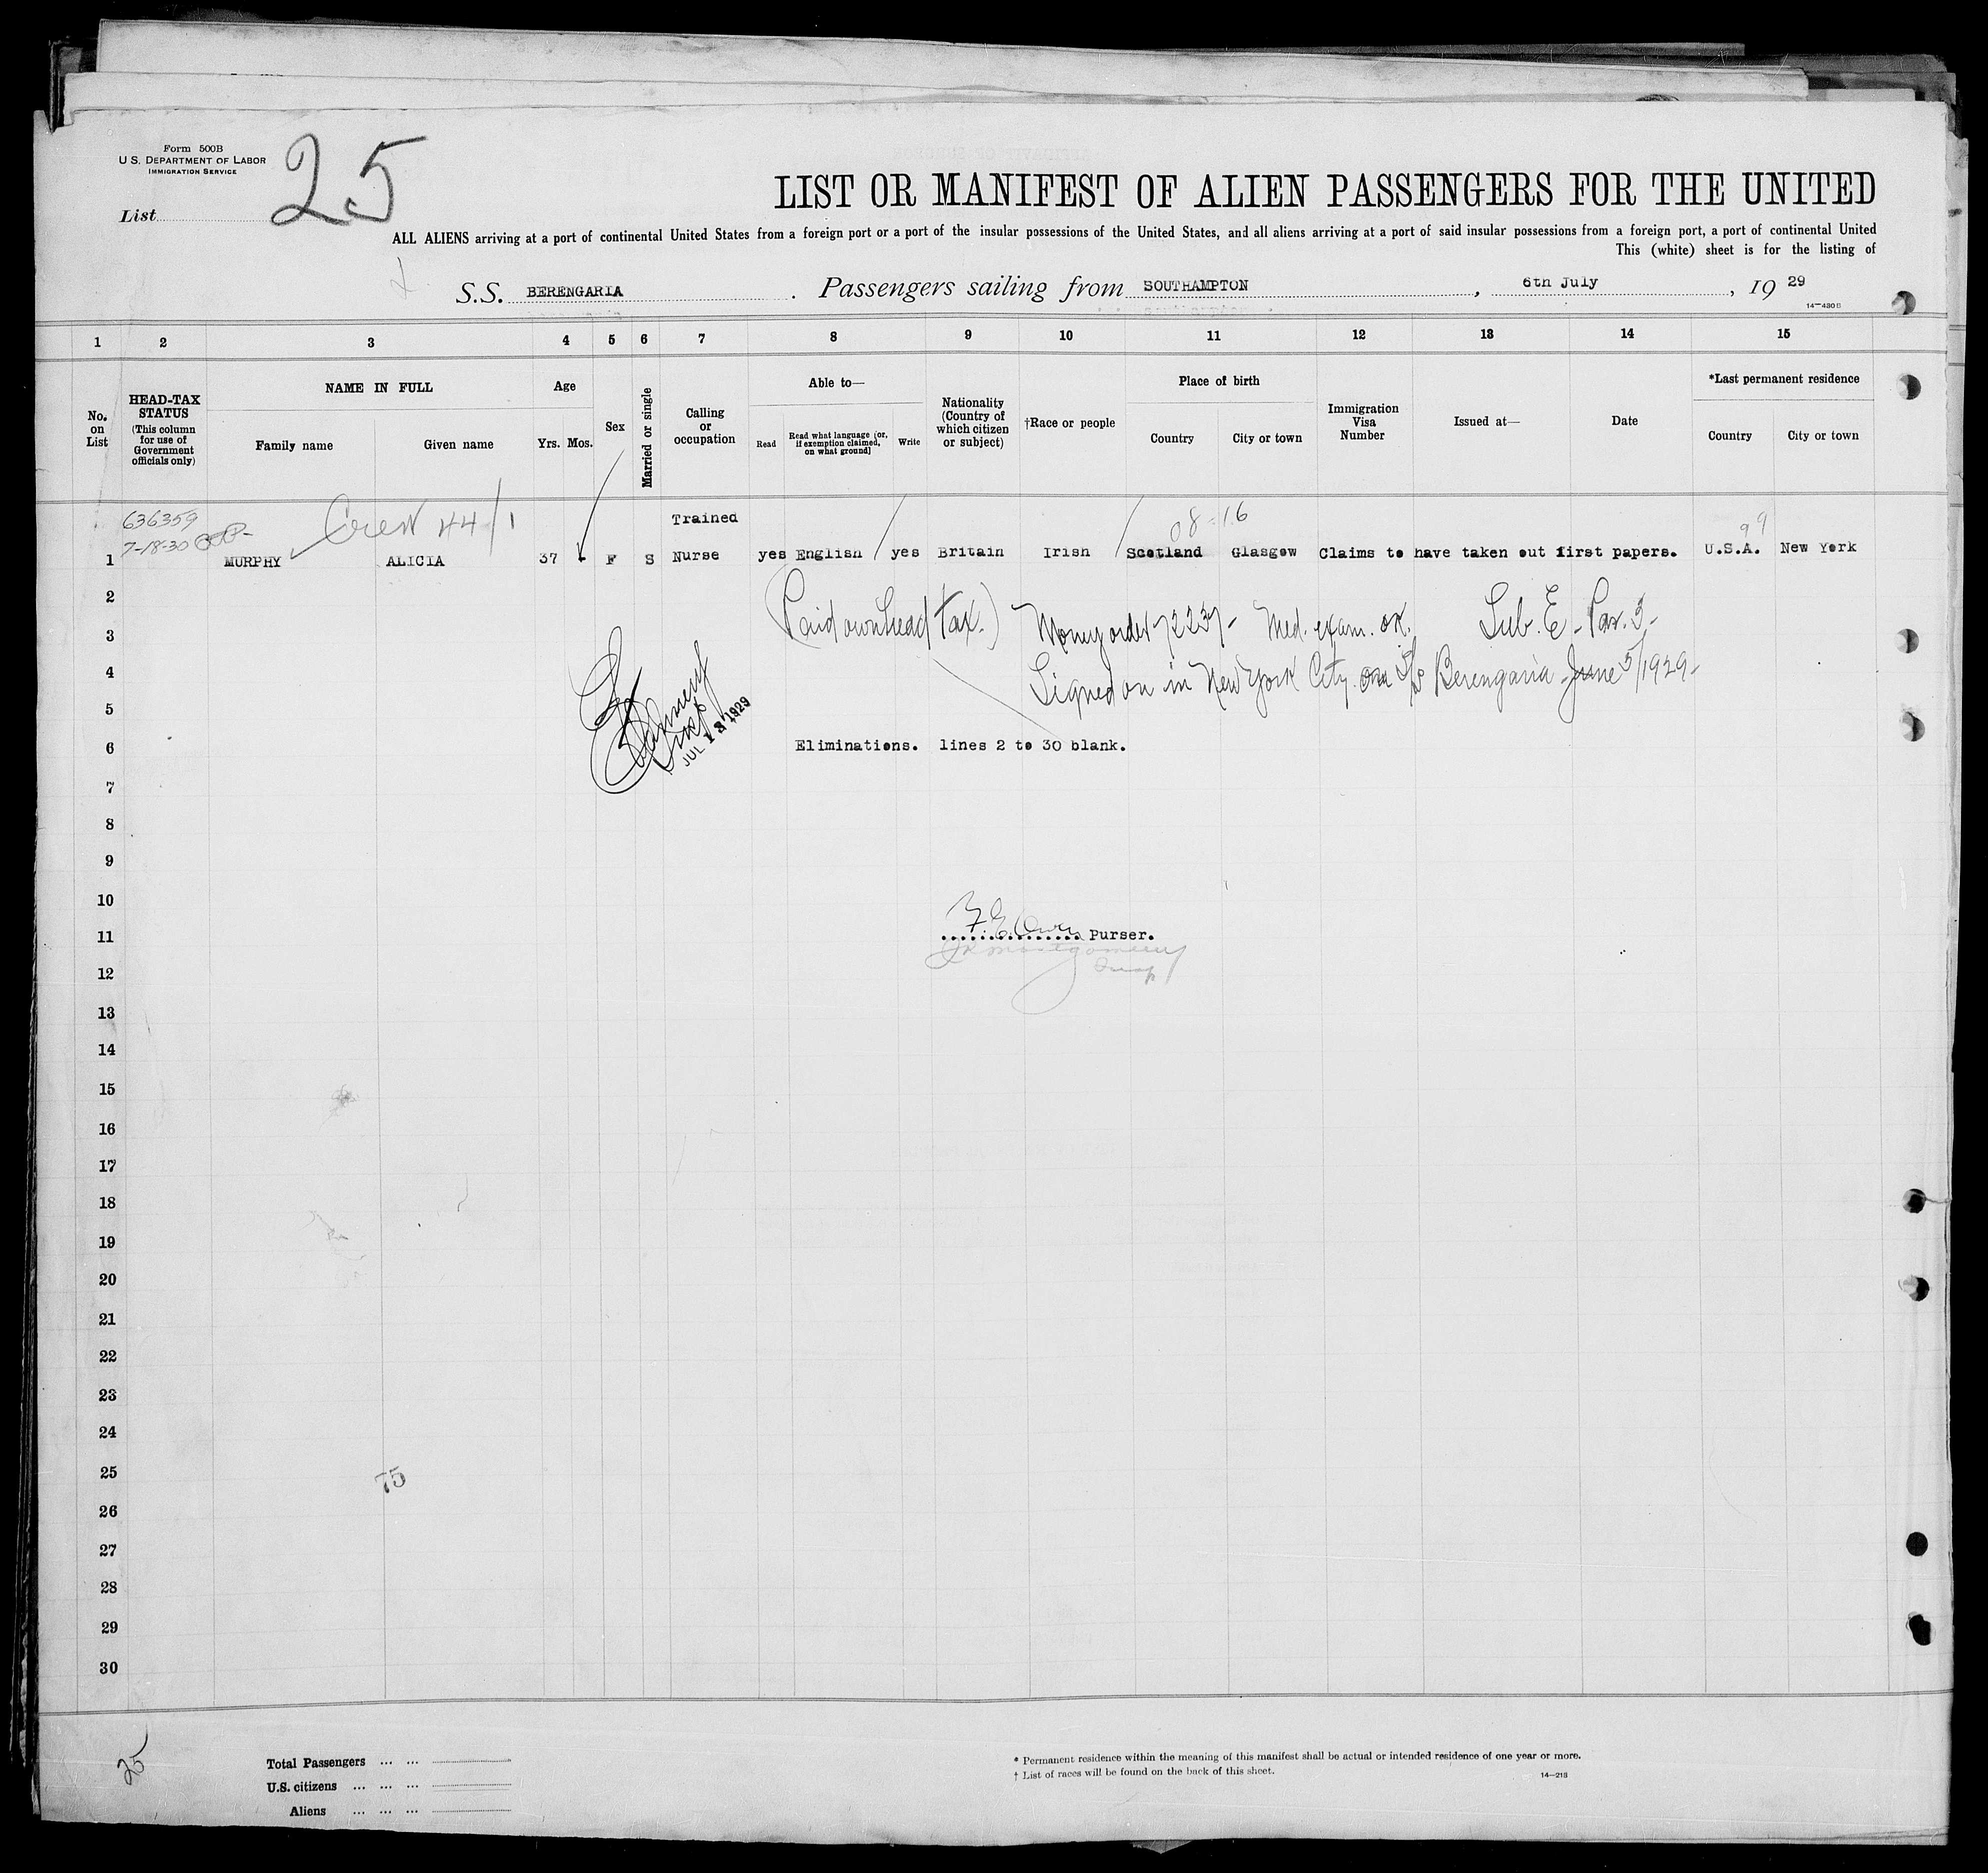 Form 500B
U.S. DEPARTMENT OF LABOR
IMMIGRATION SERVICE
List 25
LIST OR MANIFEST OF ALIEN PASSENGERS FOR THE UNITED
ALL ALIENS arriving at a port of continental United States from a foreign port or a port of the insular possessions of the United States, and all aliens arriving at a port of said insular possessions from a foreign port, a port of continental United
This (white) sheet is for the listing of
S.S. BERENGARIA . Passengers sailing from SOUTHAMPTON , 6th July , 19 29
14—430B
1 2 3 4 5 6 7 8 9 10 11 12 13 14 15
No. on List
HEAD-TAX STATUS
(This column for use of Government officials only)
NAME IN FULL
Family name Given name
Age
Yrs. Mos.
Sex
Married or single
Calling or occupation
Able to—
Read
Read what language (or, if exemption claimed, on what ground)
Write
Nationality (Country of which citizen or subject)
†Race or people
Place of birth
Country City or town
Immigration Visa Number
Issued at—
Date
*Last permanent residence
Country City or town
636359
7-18-30
44/1
Trained
08-16
99
1 MURPHY ALICIA 37 - F S Nurse yes English yes Britain Irish Scotland Glasgow Claims to have taken out first papers. U.S.A. New York
2
(Paid own head tax.) Money order 72237- Med. exam. ok. Sub. E - Par. 3-
3
4
Signed on in New York City on S/S Berengaria - June 5/1929-
5
Insp
JUL 12 1929
6 Eliminations. lines 2 to 30 blank.
7
8
9
10
F.E. Owen
11 Purser.
Montgomery
12 Insp
13
14
15
16
17
18
19
20
21
22
23
24
25 75
26
27
28
29
30
25
Total Passengers ... ...
U.S. citizens ... ... ...
Aliens ... ... ...
* Permanent residence within the meaning of this manifest shall be actual or intended residence of one year or more.
† List of races will be found on the back of this sheet.
14—218